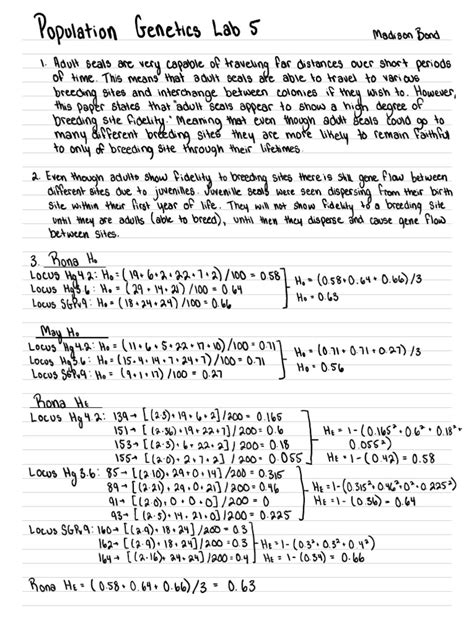 Population Genetics Lab 5
Madison Bond
1. Adult seals are very capable of traveling far distances over short periods
of time. This means that adult seals are able to travel to various
breeding sites and interchange between colonies if they wish to. However,
this paper states that "adult seals appear to show a high degree of
breeding site fidelity." Meaning that even though adult seals could go to
many different breeding sites they are more likely to remain faithful
to only of breeding site through their lifetimes.
2. Even though adults show fidelity to breeding sites there is still gene flow between
different sites due to juveniles. Juvenille seals were seen dispersing from their birth
site within their first year of life. They will not show fidelity to a breeding site
until they are adults (able to breed), until then they disperse and cause gene flow
between sites.
3. Rona Ho
Locus Hg4.2: Ho = (19+6+2+22+7+2)/100 = 0.58
Locus Hg3.6: Ho = (29+14+21)/100 = 0.64
Locus SGPv9: Ho = (18+24+24)/100 = 0.66
Ho = (0.58+0.64+0.66)/3
Ho = 0.63
May Ho
Locus Hg4.2: Ho = (11+6+5+22+17+10)/100 = 0.71
Locus Hg3.6: Ho = (15+4+14+7+24+7)/100 = 0.71
Locus SGPv9: Ho = (9+1+17)/100 = 0.27
Ho = (0.71+0.71+0.27)/3
Ho = 0.56
Rona HE
Locus Hg4.2: 139→ [(2·3)+19+6+2]/200 = 0.165
151→ [(2·36)+19+22+7]/200 = 0.6
153→ [(2·3)+6+22+2]/200 = 0.18
155→ [(2·0)+2+7+2]/200 = 0.055
HE = 1-(0.165²+0.6²+0.18²+
0.055²)
HE = 1-(0.42) = 0.58
Locus Hg3.6: 85→ [(2·10)+29+0+14]/200 = 0.315
89→ [(2·21)+29+0+21]/200 = 0.46
91→ [(2·0)+0+0+0]/200 = 0
93→ [(2·5)+14+21+0]/200 = 0.225
HE = 1-(0.315²+0.46²+0²+0.225²)
HE = 1-(0.36) = 0.64
Locus SGPv9: 160→ [(2·9)+18+24]/200 = 0.3
162→ [(2·9)+18+24]/200 = 0.3
164→ [(2·16)+24+24]/200 = 0.4
HE = 1-(0.3²+0.3²+0.4²)
HE = 1-(0.34) = 0.66
Rona HE = (0.58+0.64+0.66)/3 = 0.63